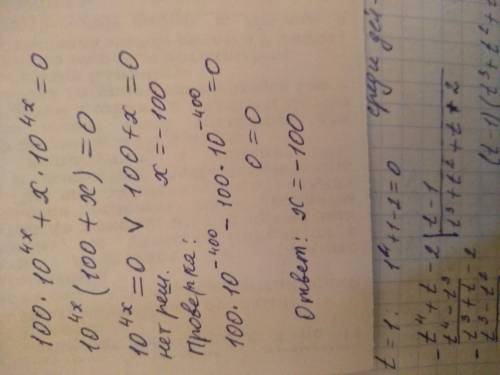 100·10^{4x} + x·10^{4x} = 0
10^{4x}(100 + x) = 0
10^{4x} = 0 ∨ 100 + x = 0
нет реш. x = -100
Проверка:
100·10^{-400} - 100·10^{-400} = 0
0 = 0
Ответ: x = -100
среди дей-
t = 1. 1^4 + 1 - 2 = 0
- t^4 + t - 2 | t - 1
t^4 - t^3 | t^3 + t^2 + t + 2
- t^3 + t - 2
t^3 - t^2
(t-1)(t^3 + t^2 +